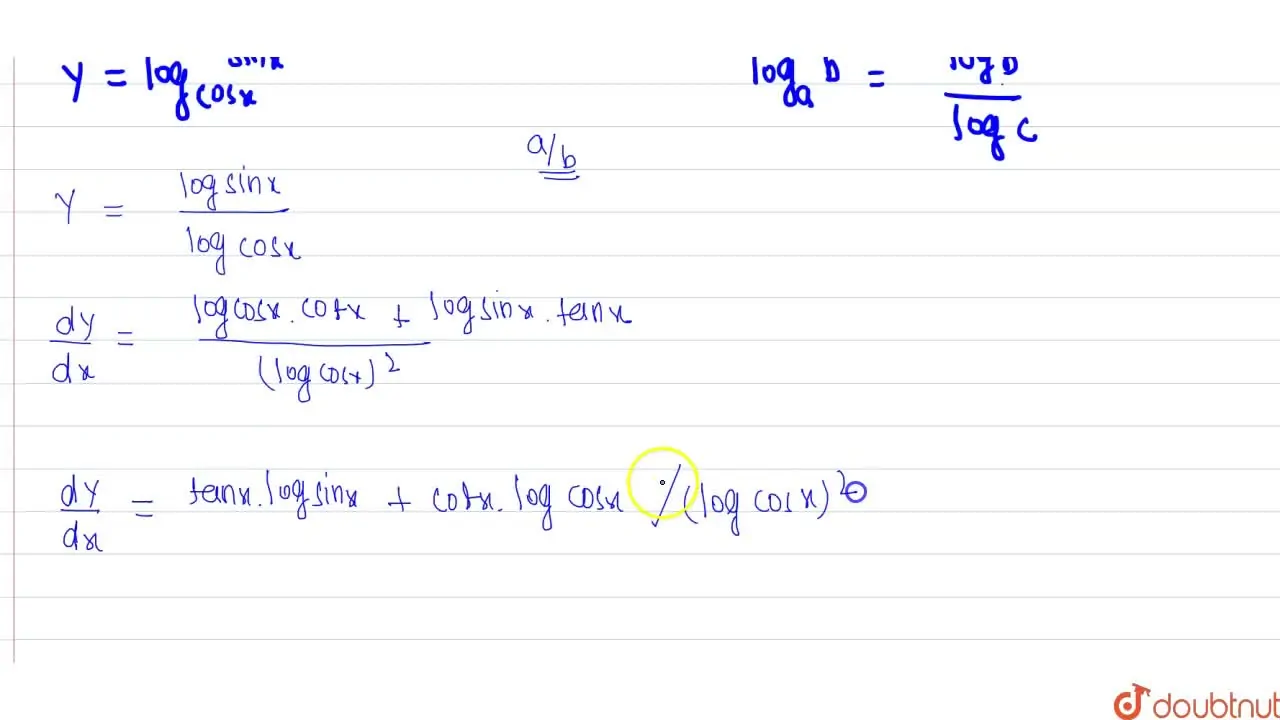 Y = log_cosx sinx
log_a b = log b / log c
a/b
Y = log sinx / log cosx
dy/dx = log cosx . cotx + log sinx . tanx / (log cosx)²
dy/dx = tanx . log sinx + cotx . log cosx / (log cosx)²
doubtnut